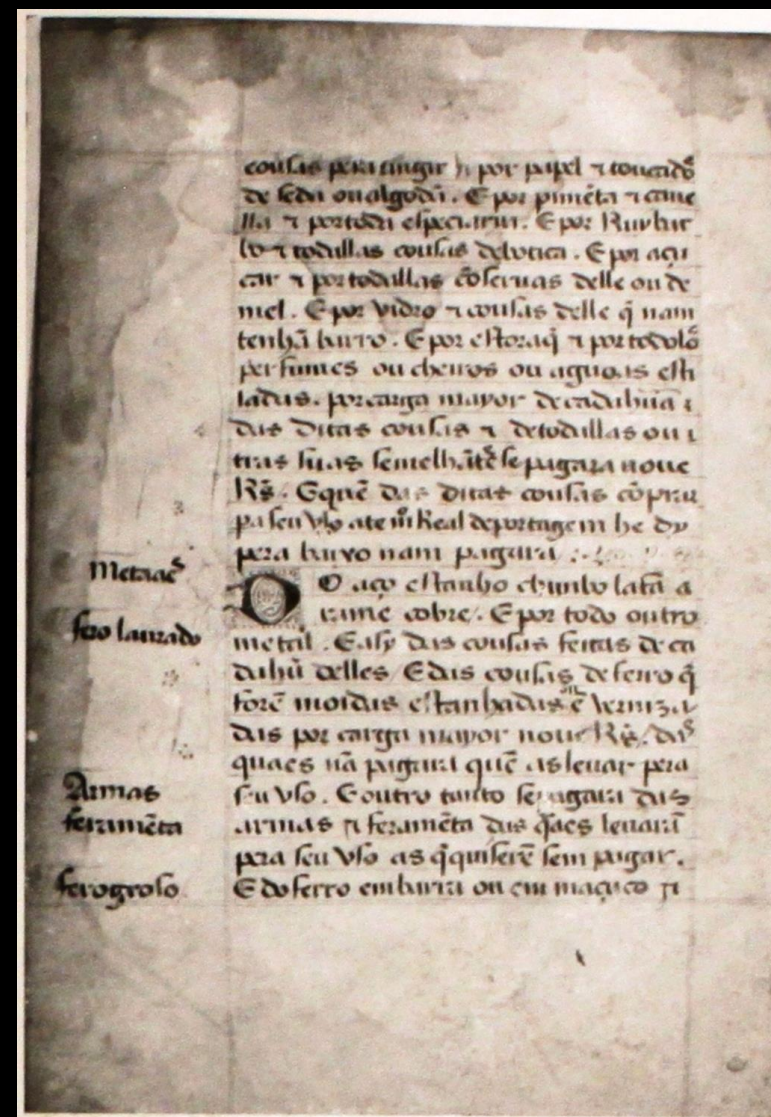 cousas pera tingir ⁊ por papel ⁊ toucados
de seda ou algodã. E por pimẽta ⁊ cane
lla ⁊ por toda especiaria. E por Ruybar
bo ⁊ todallas cousas de botica. E por açu
car ⁊ por todallas cõseruas delle ou de
mel. E por vidro ⁊ cousas delle q̃ nam
tenhã barro. E por estoraq̃ ⁊ por todolos
perfumes ou cheiros ou aguoas esti
ladas. por carga mayor de cada hũa
das ditas cousas ⁊ de todallas ou
tras suas semelhãtes se pagara noue
Rs̃. E quẽ das ditas cousas cõprar
pa seu vso ate Real de portagem he dy
pera baixo nam pagara
Metaaes
DO aço estanho chunbo latã a
rame cobre. E por todo outro
fero laurado
metal. E asy das cousas feitas de ca
dahũ delles E das cousas de ferro q̃
forẽ moidas estanhadas ẽ verniza
das por carga mayor noue Rs̃. das
quaes nã pagara quẽ as leuar pera
Armas
seu vso. E outro tanto se pagara das
feramẽta
armas ⁊ feramẽta das q̃aes leuarã
pera seu vso as q̃ quiserẽ sem pagar.
ferogroso
E do ferro em barra ou em maçuco ⁊